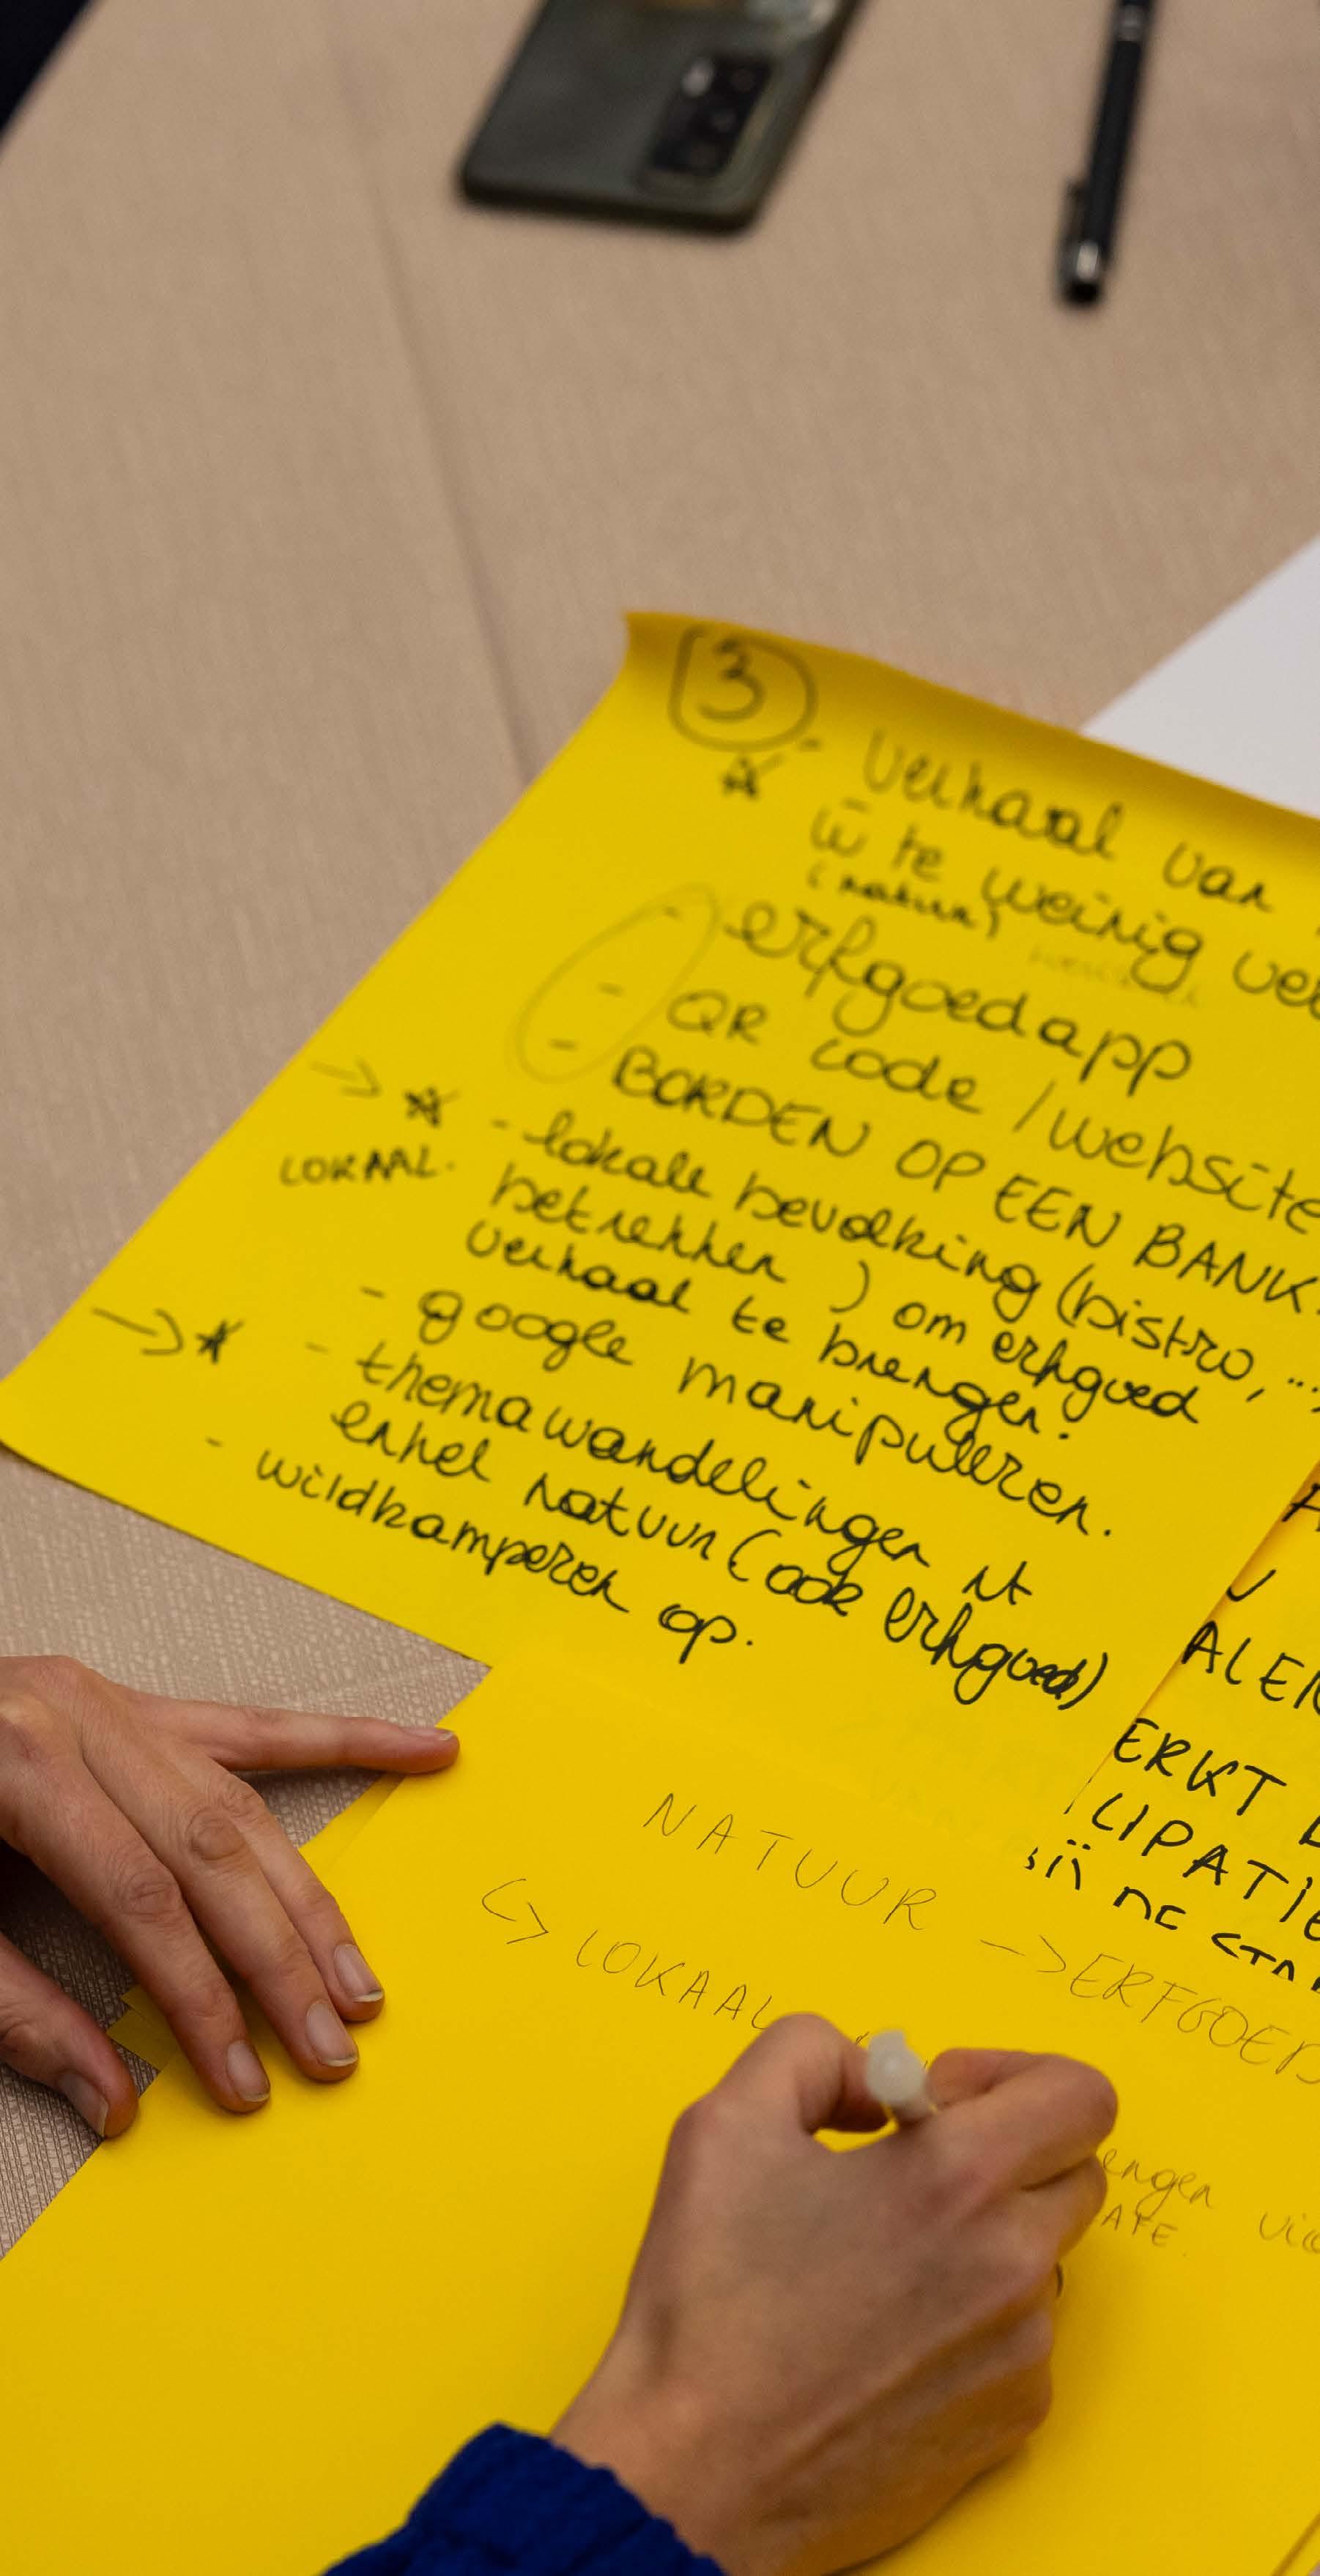 3
- Verhaal van
w̄ te weinig ver
(natuur)
- erfgoedapp
- QR code / website
- BORDEN OP EEN BANK.
→ ☆ - lokale bevolking (bistro, ...
LOKAAL.
betrekken ) om erfgoed
verhaal te brengen.
- google manipuleren.
→ ☆ - themawandelingen nt
enkel natuur (ook erfgoed)
- wildkamperen op.
ALEN
ERKT
CIPATIE
NATUUR -> ERFGOED
↳ LOKAAL
engen via